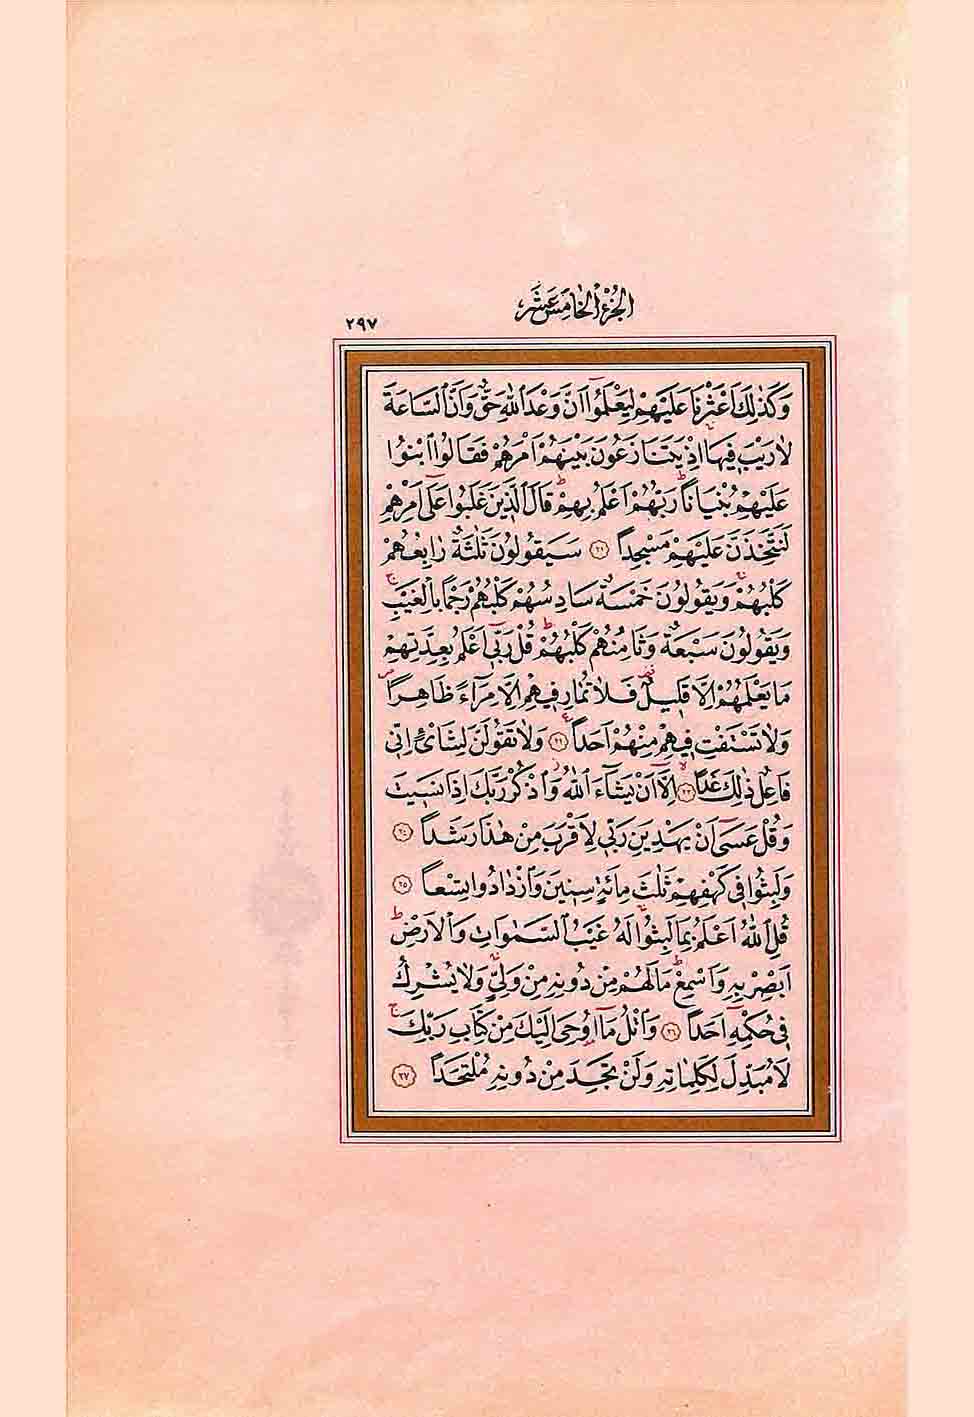 الجزء الخامس عشر
٢٩٧
وَكَذٰلِكَ اَعْثَرْنَا عَلَيْهِمْ لِيَعْلَمُٓوا اَنَّ وَعْدَ اللّٰهِ حَقٌّ وَاَنَّ السَّاعَةَ
لَا رَيْبَ فٖيهَا اِذْ يَتَنَازَعُونَ بَيْنَهُمْ اَمْرَهُمْ فَقَالُوا ابْنُوا
عَلَيْهِمْ بُنْيَاناً رَبُّهُمْ اَعْلَمُ بِهِمْ قَالَ الَّذٖينَ غَلَبُوا عَلٰٓى اَمْرِهِمْ
لَنَتَّخِذَنَّ عَلَيْهِمْ مَسْجِداً ﴿٢١﴾ سَيَقُولُونَ ثَلٰثَةٌ رَابِعُهُمْ
كَلْبُهُمْ وَيَقُولُونَ خَمْسَةٌ سَادِسُهُمْ كَلْبُهُمْ رَجْماً بِالْغَيْبِ
وَيَقُولُونَ سَبْعَةٌ وَثَامِنُهُمْ كَلْبُهُمْ قُلْ رَبّٖٓي اَعْلَمُ بِعِدَّتِهِمْ
مَا يَعْلَمُهُمْ اِلَّا قَلٖيلٌ فَلَا تُمَارِ فٖيهِمْ اِلَّا مِرَٓاءً ظَاهِراً
وَلَا تَسْتَفْتِ فٖيهِمْ مِنْهُمْ اَحَداً ﴿٢٢﴾ وَلَا تَقُولَنَّ لِشَا۬يْءٍ اِنّٖي
فَاعِلٌ ذٰلِكَ غَداً ﴿٢٣﴾ اِلَّٓا اَنْ يَشَٓاءَ اللّٰهُ وَاذْكُرْ رَبَّكَ اِذَا نَسٖيتَ
وَقُلْ عَسٰٓى اَنْ يَهْدِيَنِ رَبّٖي لِاَقْرَبَ مِنْ هٰذَا رَشَداً ﴿٢٤﴾
وَلَبِثُوا فٖي كَهْفِهِمْ ثَلٰثَ مِائَةٍ سِنٖينَ وَازْدَادُوا تِسْعاً ﴿٢٥﴾
قُلِ اللّٰهُ اَعْلَمُ بِمَا لَبِثُوا لَهُ غَيْبُ السَّمٰوَاتِ وَالْاَرْضِ
اَبْصِرْ بِهٖ وَاَسْمِعْ مَا لَهُمْ مِنْ دُونِهٖ مِنْ وَلِيٍّ وَلَا يُشْرِكُ
فٖي حُكْمِهٖٓ اَحَداً ﴿٢٦﴾ وَاتْلُ مَٓا اُوحِيَ اِلَيْكَ مِنْ كِتَابِ رَبِّكَ
لَا مُبَدِّلَ لِكَلِمَاتِهٖ وَلَنْ تَجِدَ مِنْ دُونِهٖ مُلْتَحَداً ﴿٢٧﴾